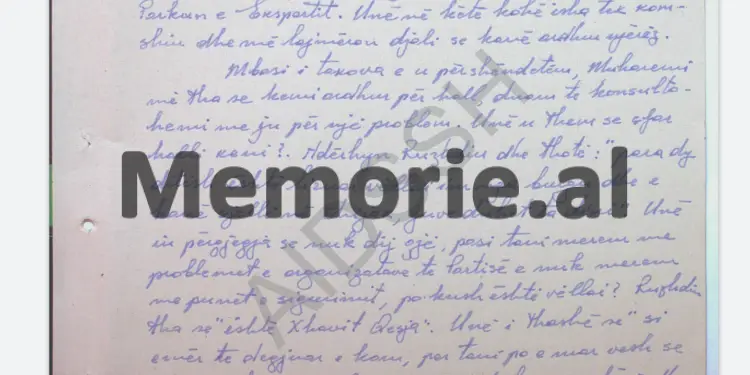 Parkun e Eksportit. Unë në këtë kohë isha tek kom-
shiu dhe më lajmëron djali se kanë ardhur njërëz.
Mbasi i takova e u përshëndetëm, Muharremi
më tha se kemi ardhur për hall, duam të konsulto-
hemi me ju për një problem. Unë u them se çfar
halli kani?. Ndërhyn Ruzhdiu dhe thotë: "para dy
dhe e
Unë
iu përgjegja se nuk dij gjë, pasi tani merem me
problemet e organizatave të Partisë e nuk merem
me punët e sigurimit, po kush është vëllai? Ruzhdiu
tha se "është Xhavit Qesja". Unë i thashë se "si
emër të degjuar e kam, por tani po e mar vesh se
Memorie.al
AIDSSH